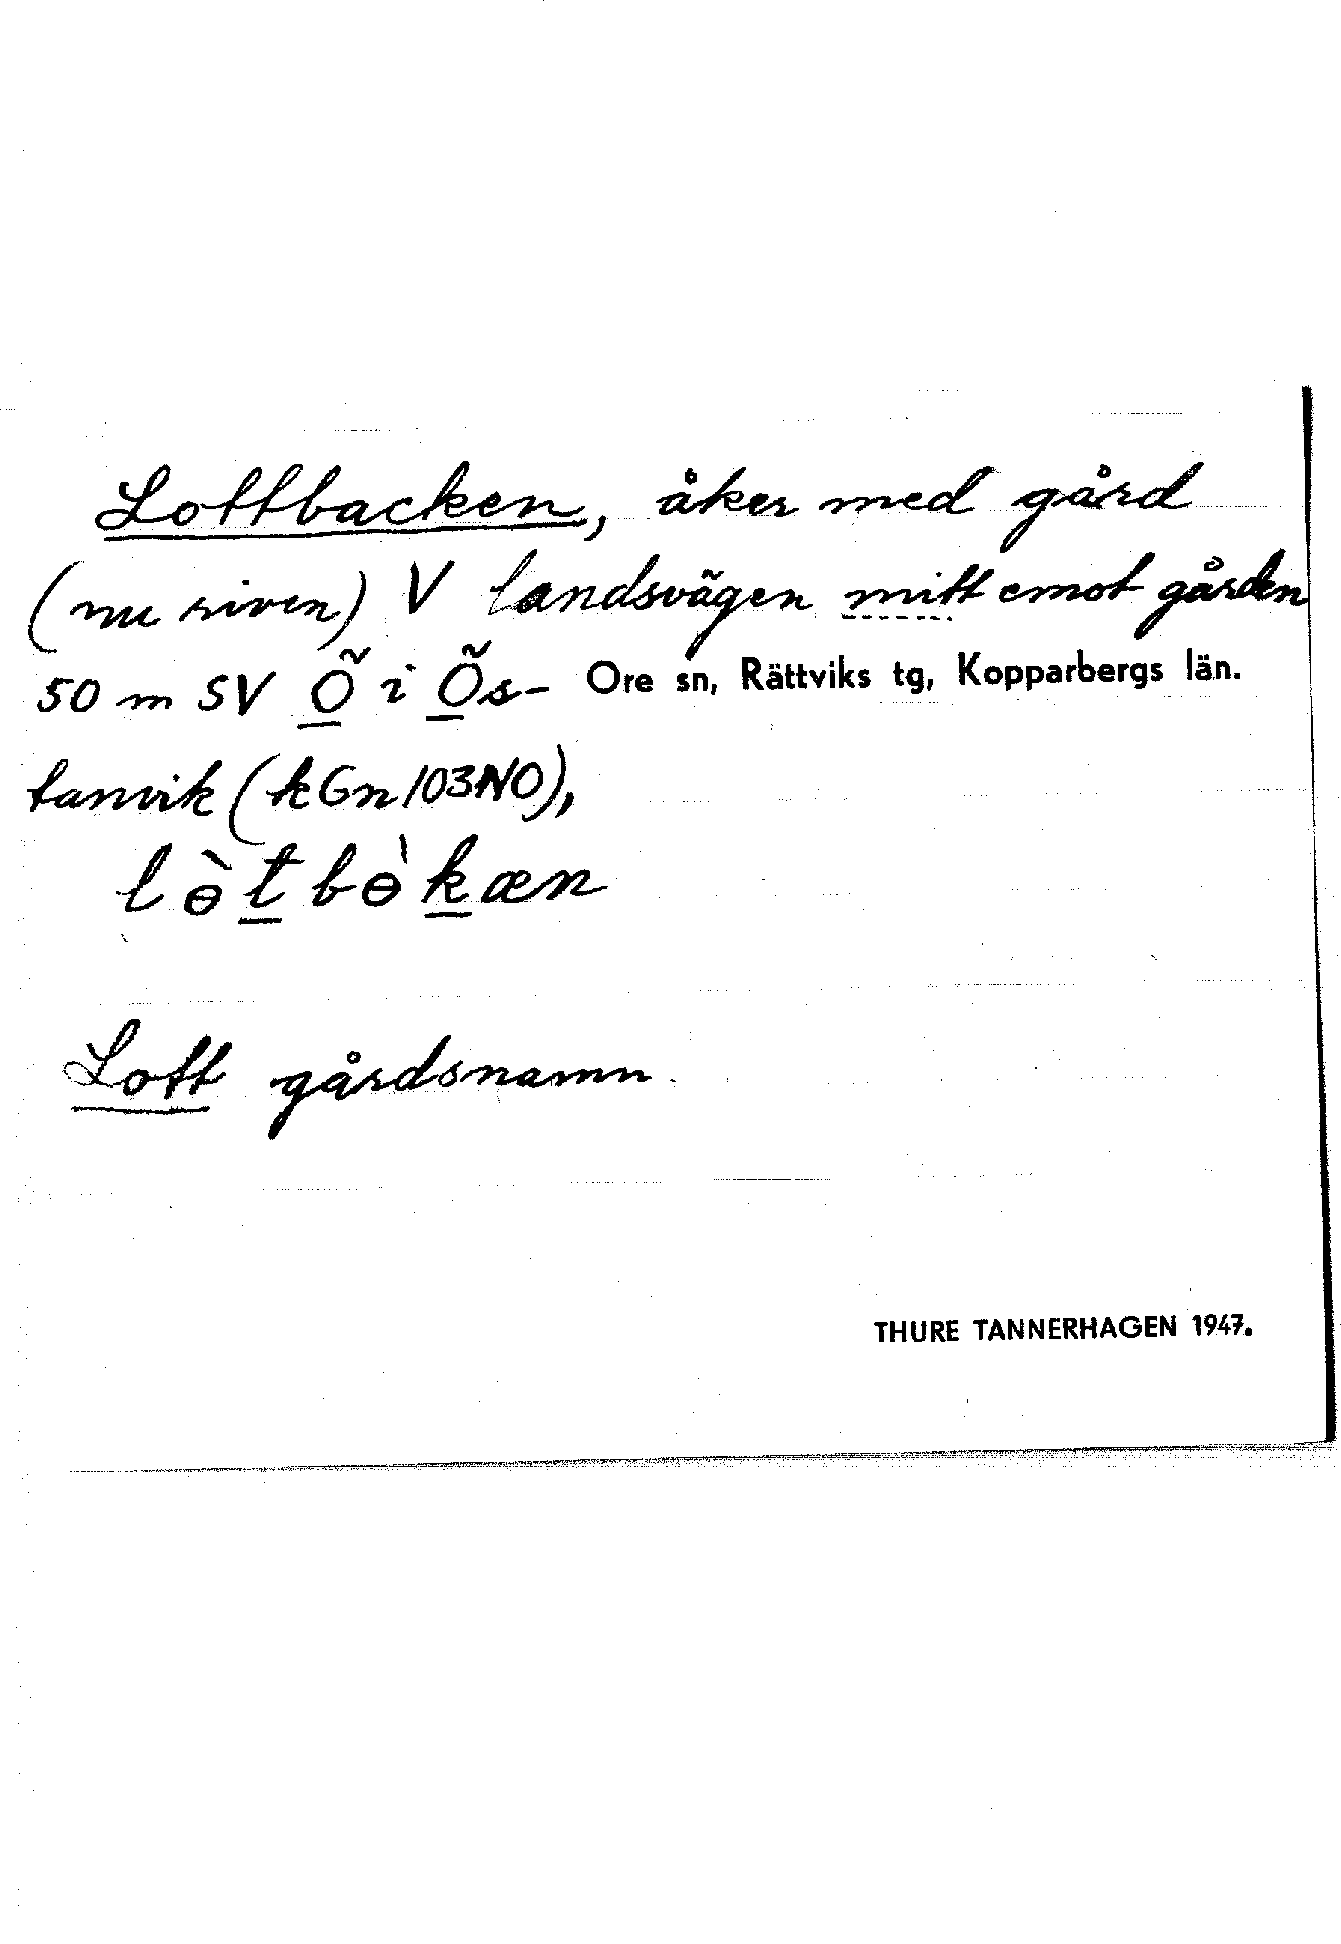 Loftbacken, åker med gård
(nu riven) V landsvägen mitt emot gården
50 m SV Ö i Ös- Ore sn, Rättviks tg, Kopparbergs län.
tanvik (kGn103NO),
lɵ̀tbɵ̀kæn
Loft gårdsnamn.
THURE TANNERHAGEN 1947.